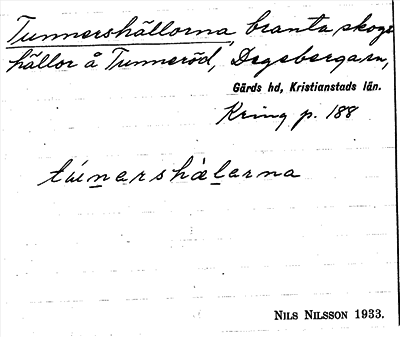 Tunnershällorna, branta skogs
hällor å Tunneröd, Degeberga sn,
Gärds hd, Kristianstads län.
Kring p. 188
NILS NILSSON 1933.